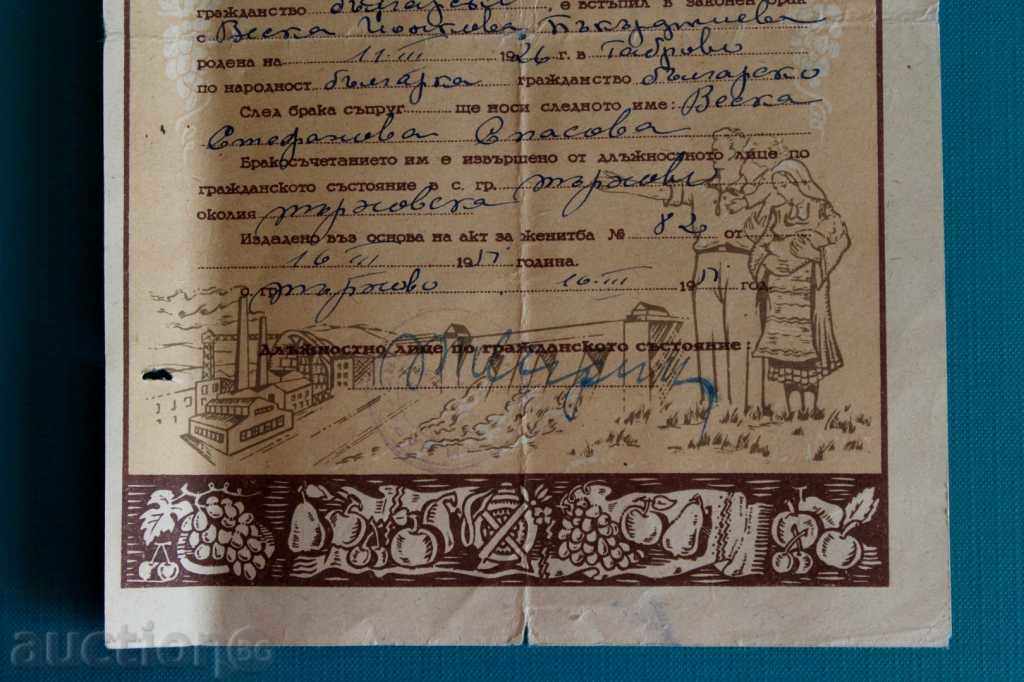 гражданство български, е встъпил в законен брак
с Веска Йоткова Пъкурджиева
родена на 11 III 1926 г. в Габрово
по народност българка гражданство българско
След брака съпруг ще носи следното име: Веска
Стефанова Спасова
Бракосъчетанието им е извършено от длъжностното лице по
гражданското състояние в с. гр. Търново
околия Търновска
Издадено въз основа на акт за женитба № 82 от
16 III 1951 година.
с. гр. Търново 16 III 1951 год.
Длъжностно лице по гражданското състояние:
auction.bg